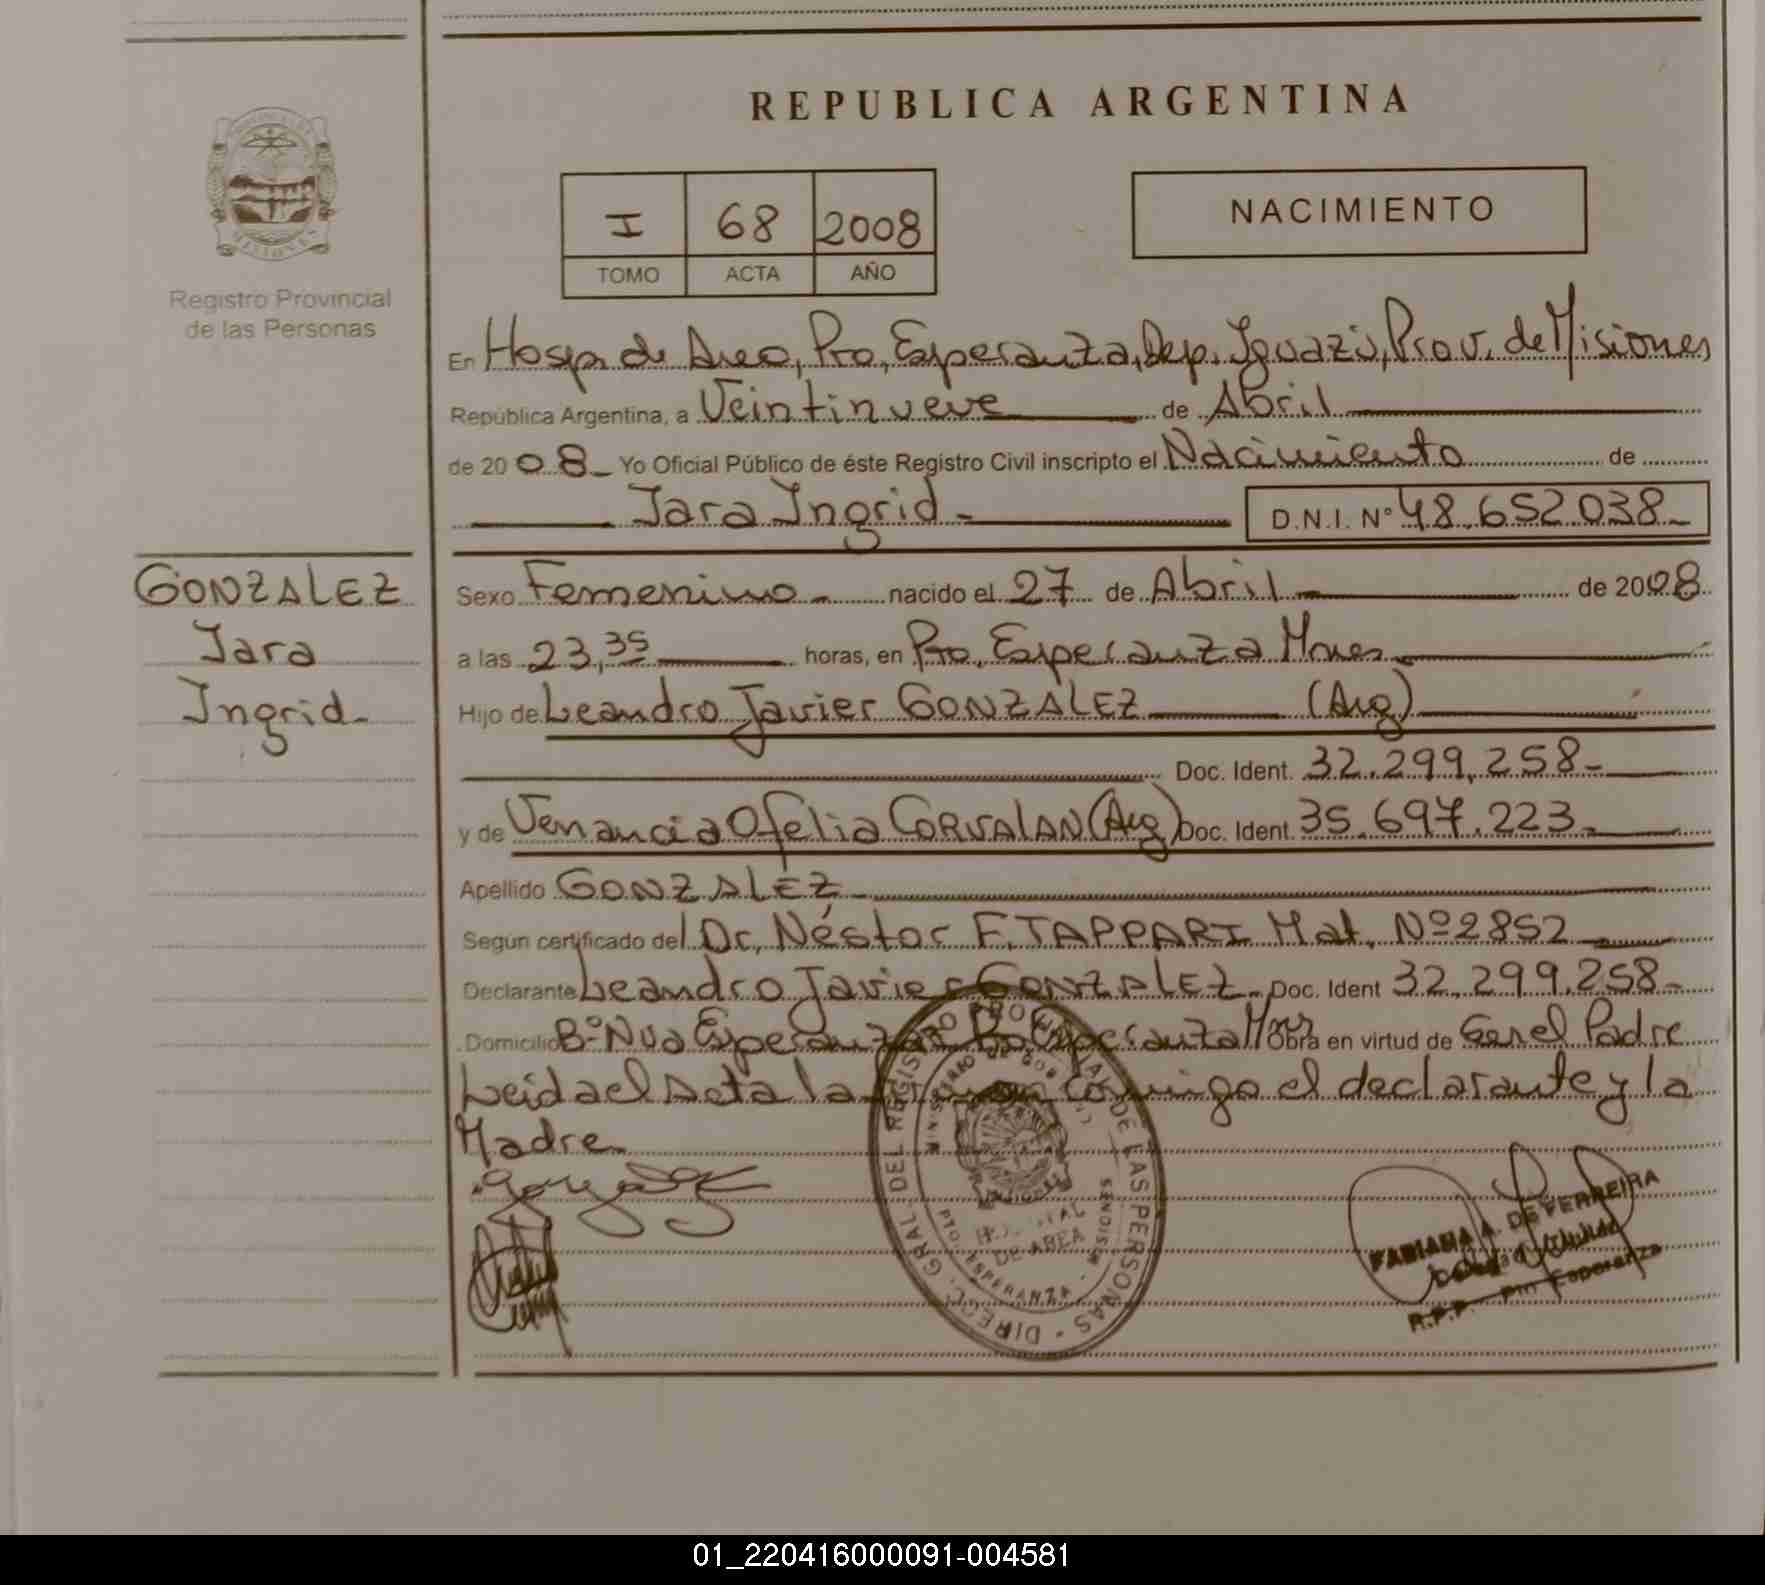 REPUBLICA ARGENTINA
I 68 2008
TOMO ACTA AÑO
NACIMIENTO
MISIONES
Registro Provincial
de las Personas
En Hosp. de Area, Pto, Esperanza, Dep. Iguazú, Prov. de Misiones
República Argentina, a Veintinueve de Abril
de 2008 Yo Oficial Público de éste Registro Civil inscripto el Nacimiento de
Jara Ingrid D.N.I. Nº 48.652.038
GONZALEZ
Jara
Ingrid
Sexo Femenino nacido el 27 de Abril de 2008
a las 23,35 horas, en Pto, Esperanza Mnes
Hijo de Leandro Javier GONZALEZ (Arg)
Doc. Ident. 32.299.258
y de Venancia Ofelia CORVALAN (Arg) Doc. Ident. 35.697.223
Apellido GONZALEZ
Según certificado del Dr, Néstor F. TAPPARI Mat. Nº 2852
Declarante Leandro Javier GONZALEZ Doc. Ident 32.299.258
Domicilio Bº Nva Esperanza Pto Esperanza Mnes Obra en virtud de Ser el Padre
Leida el Acta la conmigo el declarante y la
Madre
DIRECC. GRAL. DEL REGISTRO PROVINCIAL DE LAS PERSONAS
MINISTERIO DE GOBIERNO
HOSPITAL
DE AREA
PTO. ESPERANZA - MISIONES
FABIANA A. DE FERREIRA
R.P.P. Pto Esperanza
01_220416000091-004581